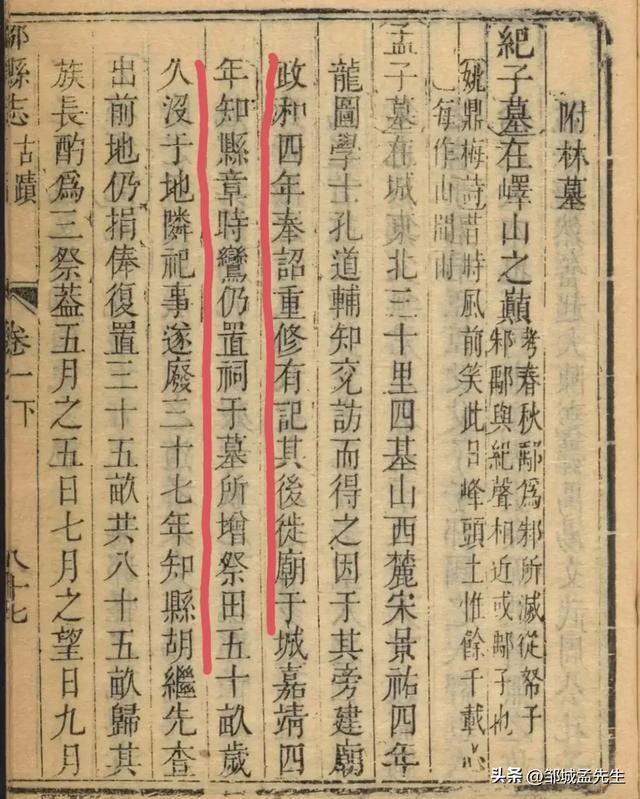 附林墓
紀子墓在嶧山之巔
考春秋鄅爲邾所滅從帑于
邾鄅與紀聲相近或鄅子也
姚鼎梅詩昔時風前笑此日峰頭土惟餘千載心
每作山間雨
孟子墓在城東北三十里四基山西麓宋景祐四年
龍圖學士孔道輔知兗訪而得之因于其旁建廟
政和四年奉詔重修有記其後徙廟于城嘉靖四
年知縣章時鸞仍置祠于墓所增祭田五十畝歲
久沒于地隣祀事遂廢三十七年知縣胡繼先查
出前地仍捐俸復置三十五畝共八十五畝歸其
族長酌爲三祭葢五月之五日七月之望日九月
縣志 古蹟 卷一下 八十七
头条 @邹城孟先生